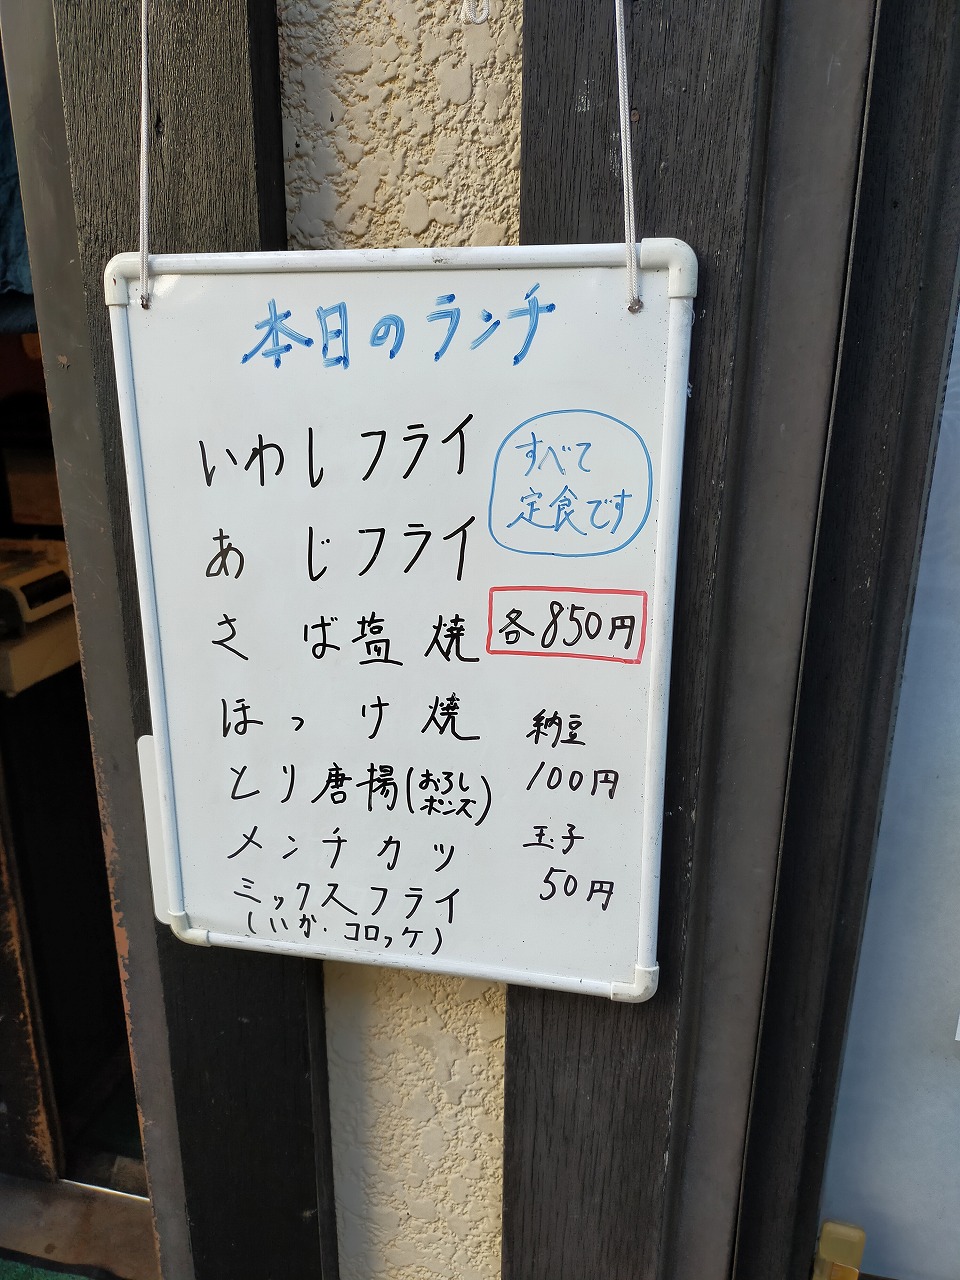 本日のランチ
いわしフライ
あじフライ
さば塩焼
ほっけ焼
とり唐揚(おろし
ポンズ)
メンチカツ
ミックスフライ
(いか・コロッケ)
すべて
定食です
各850円
納豆
100円
玉子
50円